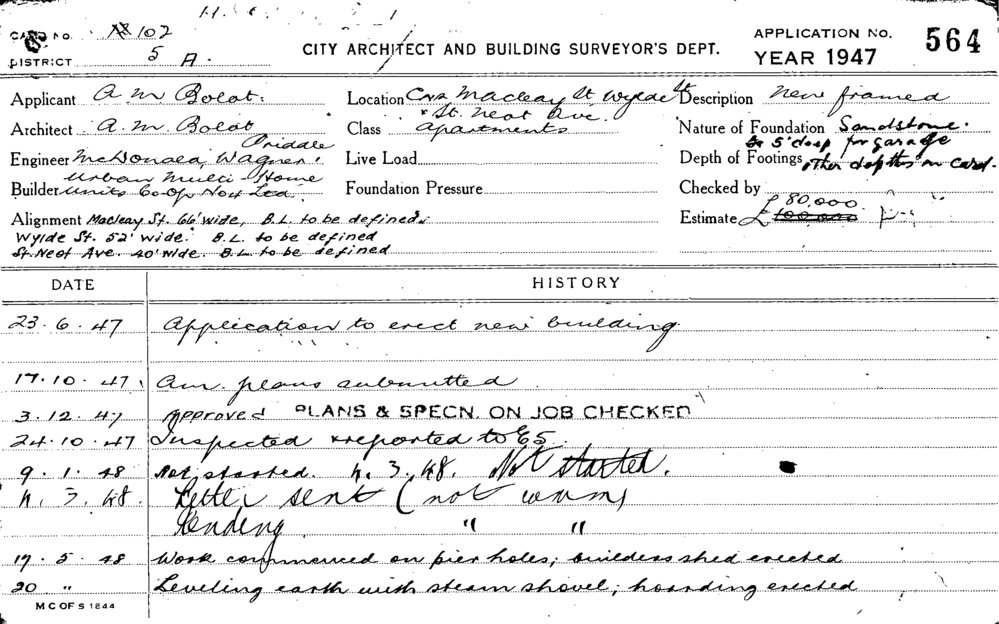 CARD NO. 102
DISTRICT 5 A.
CITY ARCHITECT AND BUILDING SURVEYOR'S DEPT.
APPLICATION NO. 564
YEAR 1947
Applicant A. M. Bolot.
Location Cnr Macleay St Wylde St
& St. Neot Ave.
Description New framed
Architect A. M. Bolot
Class Apartments
Nature of Foundation Sandstone.
Priddle
Engineer McDonald, Wagner &
Live Load
to 5' deep for garage
Depth of Footings other depths on card.
Urban Multi Home
Builder Units Co-Op No 4 Ltd.
Foundation Pressure
Checked by
£80,000
Estimate £ 100,000
Alignment Macleay St. 66' wide, B.L. to be defined.
Wylde St. 52' wide. B.L. to be defined
St. Neot Ave. 40' wide. B.L. to be defined
DATE HISTORY
23.6.47 Application to erect new building
17.10.47 Am. plans submitted
3.12.47 Approved PLANS & SPECN. ON JOB CHECKED
24.10.47 Inspected & reported to
9.1.48 Not started. 4.3.48. Not started.
4.3.48. Letter sent (not comm)
Sending " "
17.5.48 Work commenced on pier holes; builders shed erected
20 " Leveling earth with steam shovel; hoarding erected
M C OF S 1844